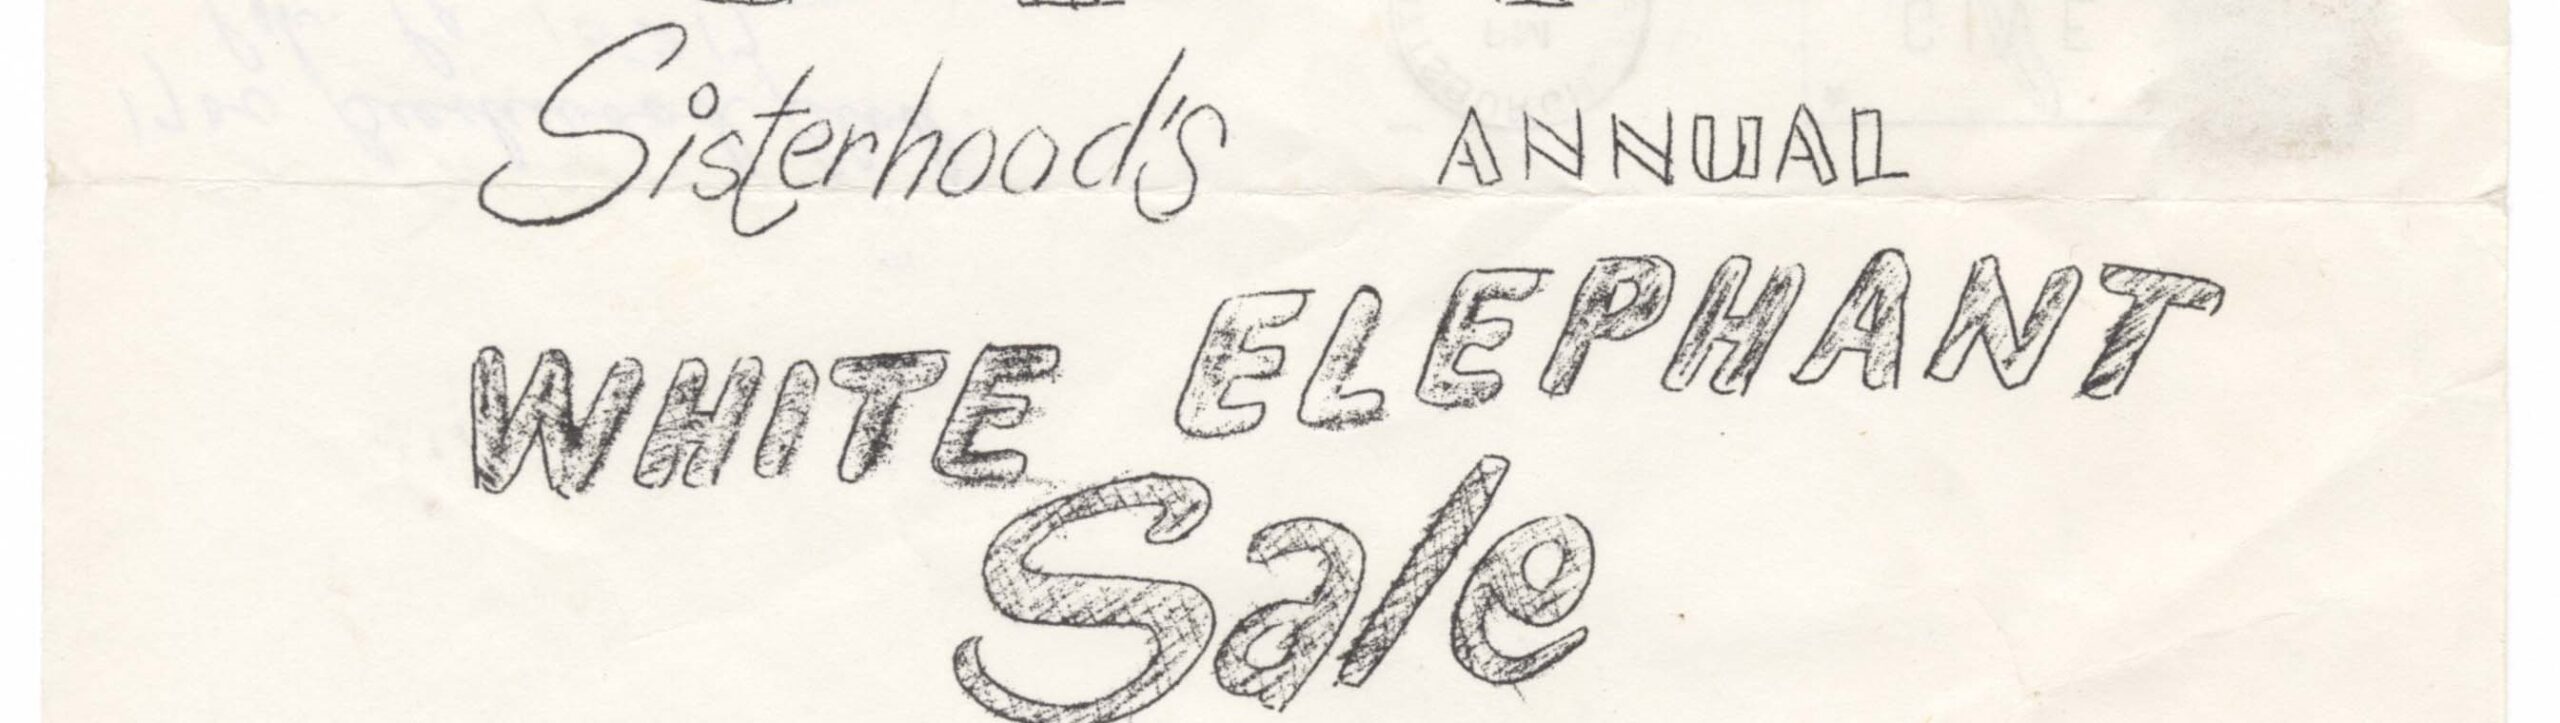 Sisterhood's ANNUAL
WHITE ELEPHANT
Sale